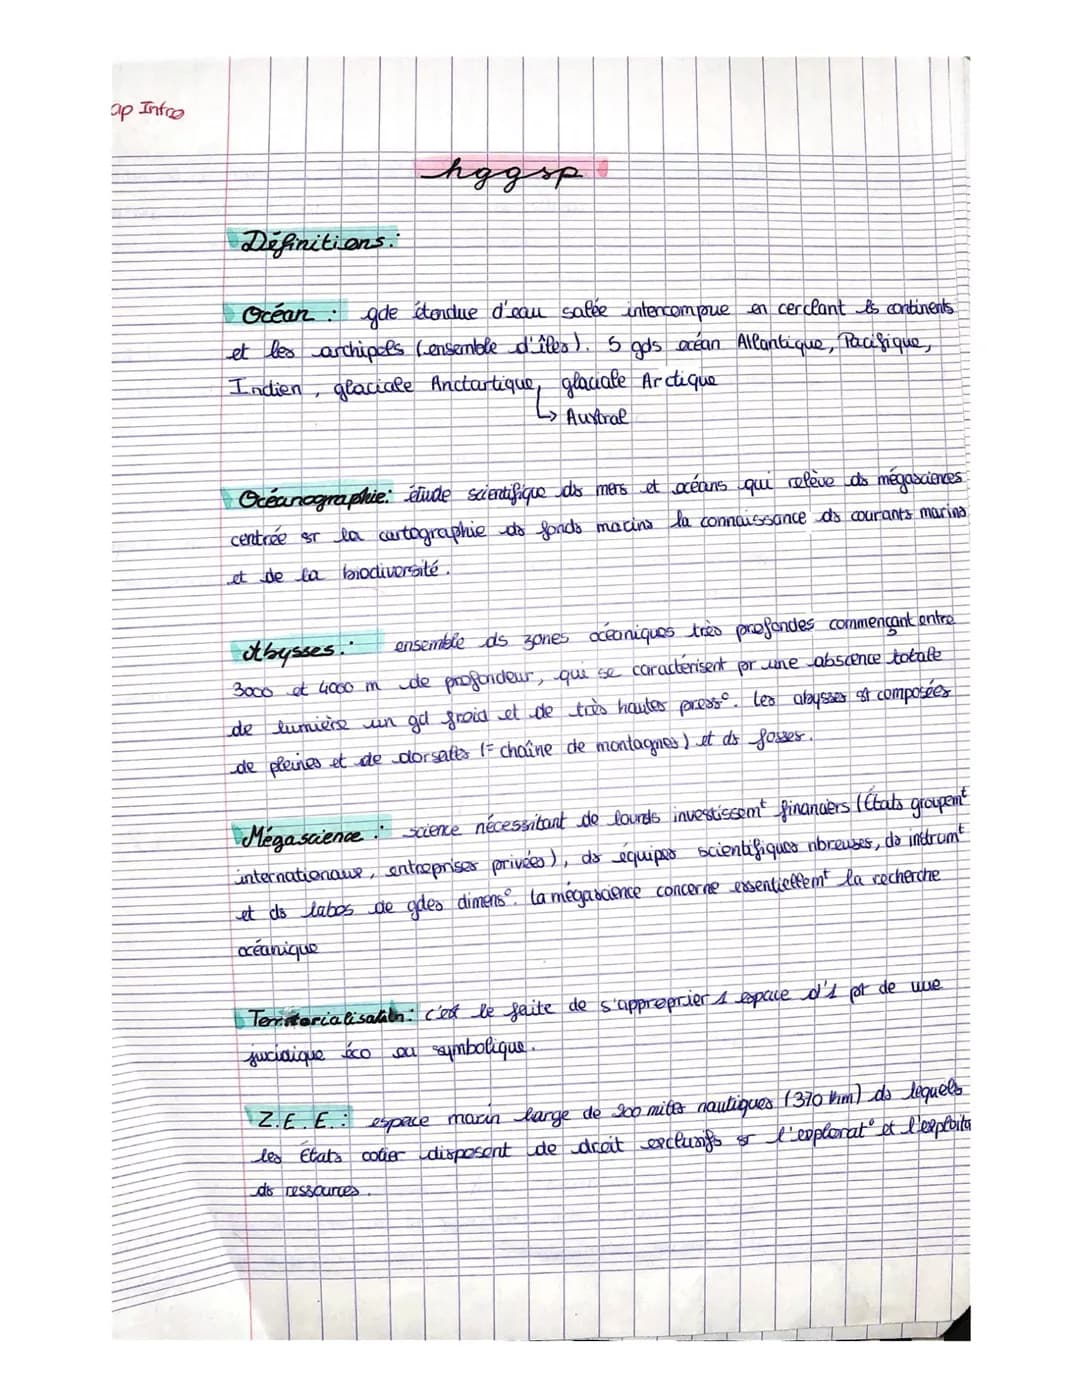 ap Intro
hggsp
Définitions:
Océan : gde étendue d'eau salée intercompue en cerclant les continents
et les archipels (ensemble d'îles). 5 gds océan Atlantique, Pacifique,
Indien, glaciale Anctartique, glaciale Arctique
↳ Austral
Océanographie: étude scientifique ds mers et océans qui relève ds mégasciences
centrée sr la cartographie ds fonds marins la connaissance ds courants marins
et de la biodiversité.
Abysses : ensemble ds zones océaniques très profondes commençant entre
3000 et 4000 m de profondeur, qui se caractérisent par une abscence totale
de lumière un gd froid et de très hautes press°. Les abysses st composées
de pleines et de dorsales (= chaîne de montagnes) et ds fosses.
Mégascience : science nécessitant de lourds investissemt financiers (États groupemt
internationaux, entreprises privées), ds équipes scientifiques nbreuses, ds instrumt
et ds labos de gdes dimens°. La mégascience concerne essentiellemt la recherche
océanique
Territorialisation: c'est le faite de s'approprier 1 espace d'1 pt de vue
juridique éco ou symbolique.
Z.E.E. : espace marin large de 200 milles nautiques (370 km) ds lequels
les États cotier disposent de droit exclusifs sr l'explorat° et l'exploita
ds ressources.